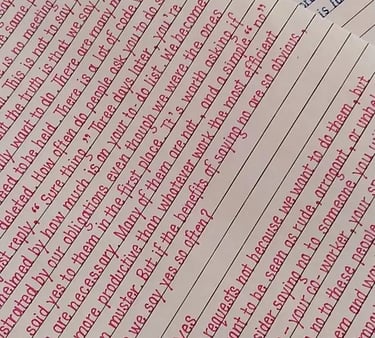 is no
same
This is not to say
the truth is that we s
ly want to do. There are many
need to be held. There is a lot of code
deleted. How often do people ask you to do
reply, “Sure thing.” Three days later, you're
whelmed by how much is on your to-do list. We become
strated by our obligations even though we were the ones
said yes to them in the first place. It's worth asking if
are necessary. Many of them are not, and a simple “no”
more productive than whatever work the most efficient
n muster. But if the benefits of saying no are so obvious,
we say yes so often?
yes
requests not because we want to do them, but
ant to be seen as rude, arrogant, or un
sider saying no to someone you wi
-your co-worker, your s
no to these people
em and